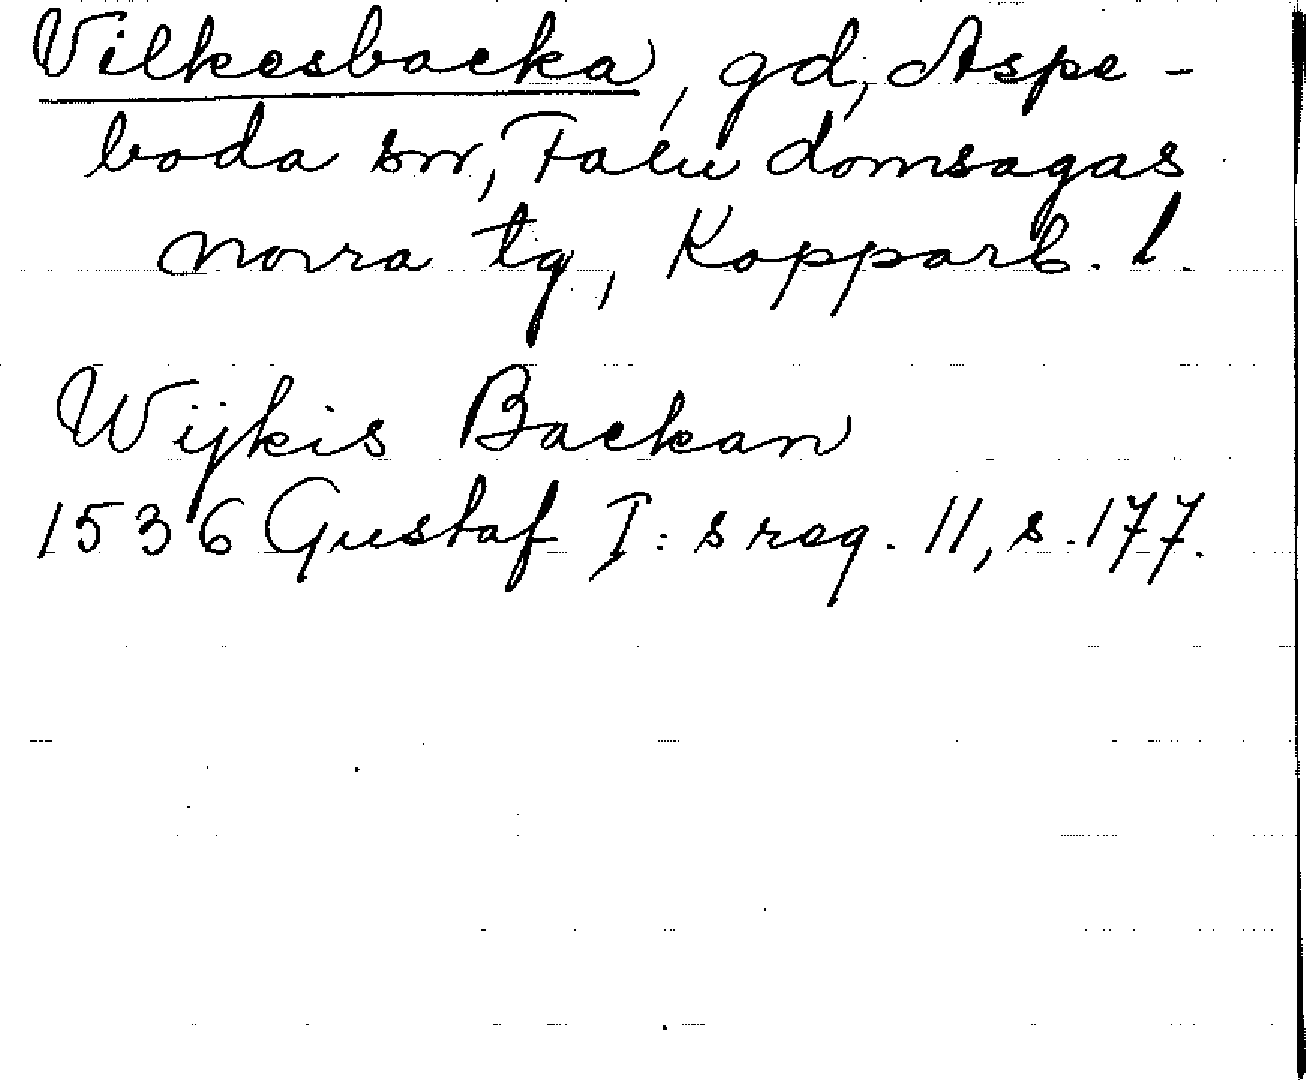 Vilkesbacka, gd, Aspe-
boda sn, Falu domsagas
norra tg, Kopparb. l.
Wijkis Backan
1536 Gustaf I:s reg. 11, s. 177.